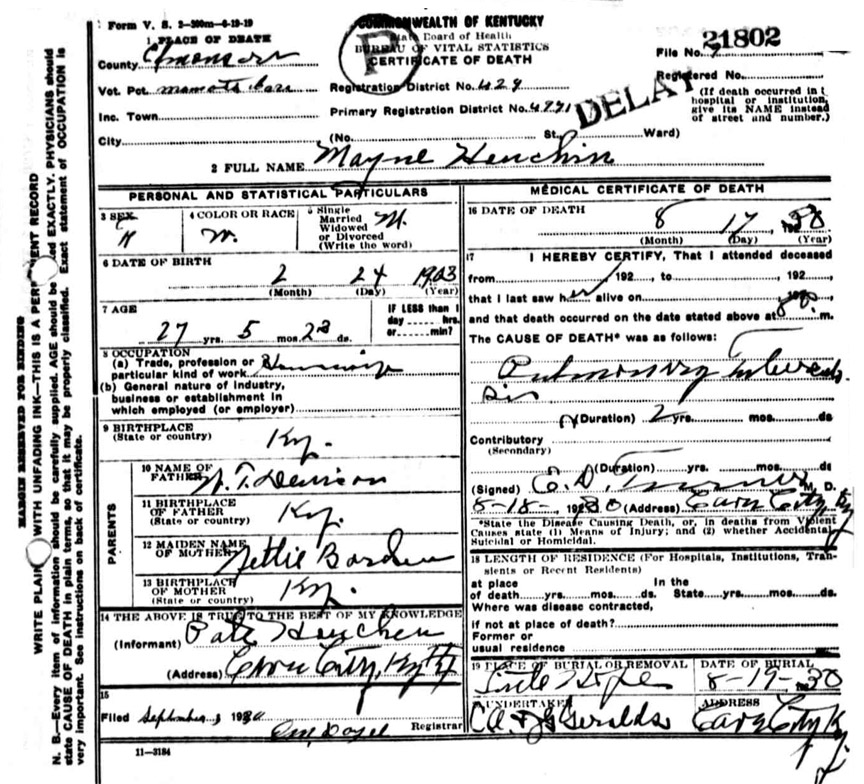 Form V. S. 2-300m-6-19-19
COMMONWEALTH OF KENTUCKY
State Board of Health
BUREAU OF VITAL STATISTICS
CERTIFICATE OF DEATH
P
21802
File No.
Registered No.
(If death occurred in
hospital or institution,
give its NAME instead
of street and number.)
DELAY
1 PLACE OF DEATH
County Edmonson
Vot. Pct.
Inc. Town
City
Registration District No. 429
Primary Registration District No. 4791
(No. St. Ward)
2 FULL NAME Mayne Houchin
PERSONAL AND STATISTICAL PARTICULARS
3 SEX
4 COLOR OR RACE W.
5 Single
Married
Widowed
or Divorced
(Write the word) M.
6 DATE OF BIRTH
2 24 1903
(Month) (Day) (Year)
7 AGE
27 yrs. 5 mos. 23 ds.
IF LESS than 1
day ------ hrs.
or ------ min?
8 OCCUPATION
(a) Trade, profession or
particular kind of work
(b) General nature of industry,
business or establishment in
which employed (or employer)
9 BIRTHPLACE
(State or country) Ky.
PARENTS
10 NAME OF
FATHER T. Denison
11 BIRTHPLACE
OF FATHER
(State or country) Ky.
12 MAIDEN NAME
OF MOTHER Nettie
13 BIRTHPLACE
OF MOTHER
(State or country) Ky.
14 THE ABOVE IS TRUE TO THE BEST OF MY KNOWLEDGE
(Informant) Houchen
(Address) Cave City, Ky
15
Filed September 1930
Registrar
11-3184
MEDICAL CERTIFICATE OF DEATH
16 DATE OF DEATH
8 17 30
(Month) (Day) (Year)
17 I HEREBY CERTIFY, That I attended deceased
from 192 , to 192
that I last saw her alive on
and that death occurred on the date stated above at m.
The CAUSE OF DEATH* was as follows:
Pulmonary tuberculo
sis
(Duration) 2 yrs. mos. ds
Contributory
(Secondary)
(Duration) yrs. mos. ds
(Signed) E. D. Turner M. D.
8-18-, 1930 (Address) Cave City, Ky
*State the Disease Causing Death, or, in deaths from Violent
Causes state (1) Means of Injury; and (2) whether Accidental,
Suicidal or Homicidal.
18 LENGTH OF RESIDENCE (For Hospitals, Institutions, Tran-
sients or Recent Residents)
at place In the
of death yrs. mos. ds. State yrs. mos. ds.
Where was disease contracted,
if not at place of death?
Former or
usual residence
19 PLACE OF BURIAL OR REMOVAL
Little Hope
DATE OF BURIAL
8-19-30
UNDERTAKER
Geralds
ADDRESS
Cave City Ky
MARGIN RESERVED FOR BINDING
WRITE PLAINLY WITH UNFADING INK—THIS IS A PERMANENT RECORD
N. B.—Every item of information should be carefully supplied. AGE should be stated EXACTLY. PHYSICIANS should
state CAUSE OF DEATH in plain terms, so that it may be properly classified. Exact statement of OCCUPATION is
very important. See instructions on back of certificate.